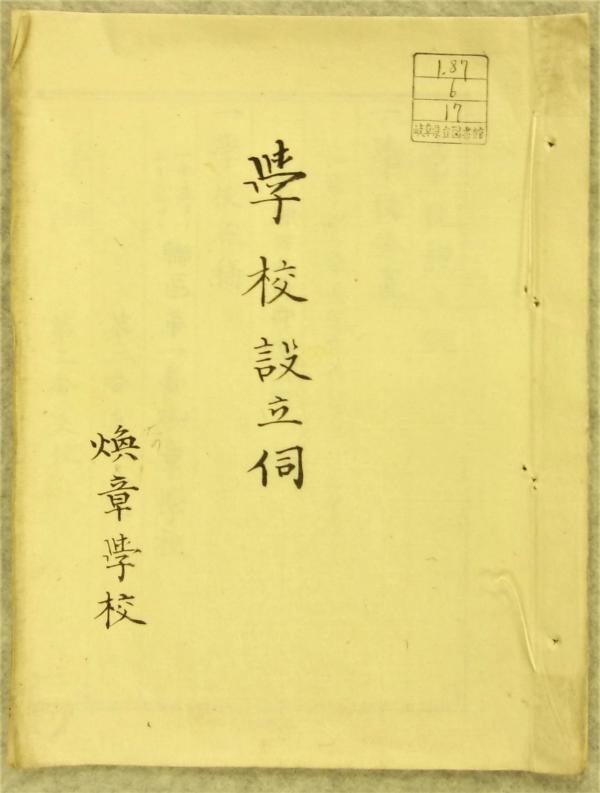 1.87
6
17
岐阜県立図書館
學校設立伺
煥章學校